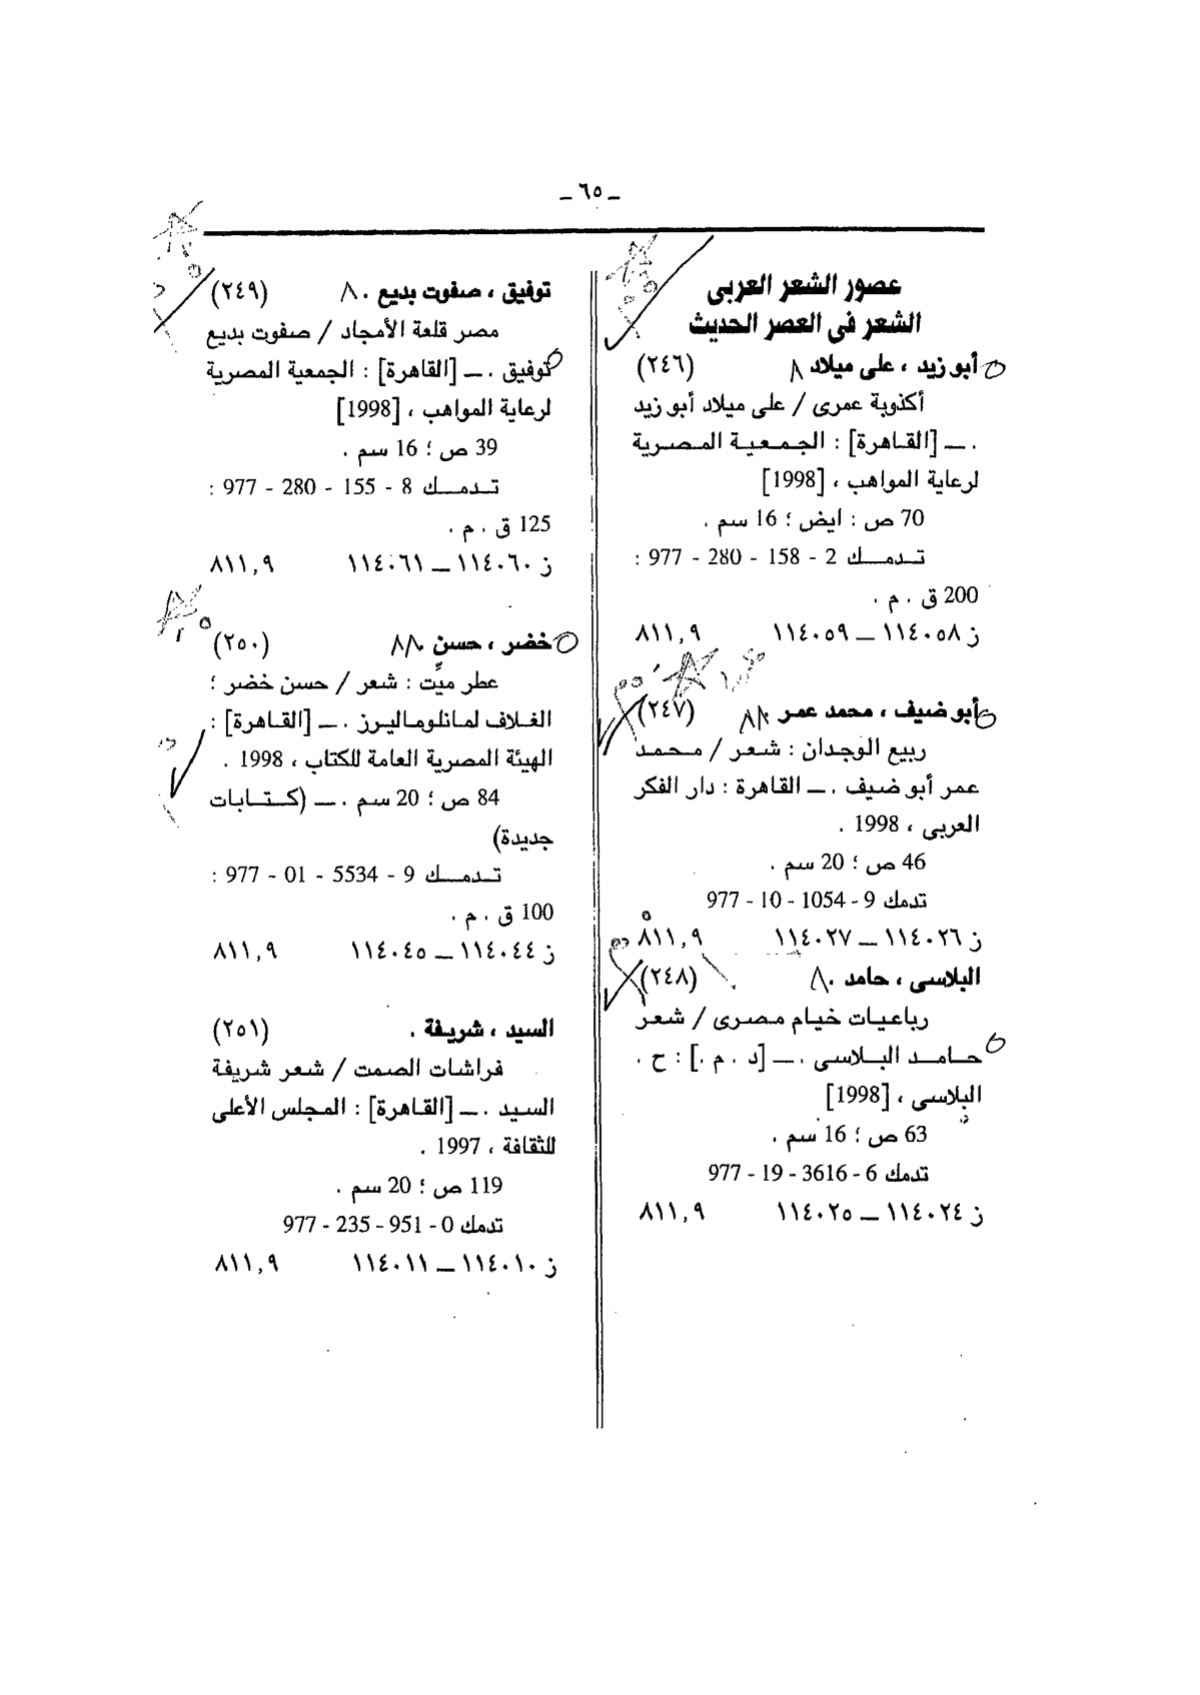 ـ ٦٥ ـ
عصور الشعر العربى
الشعر فى العصر الحديث
أبو زيد ، على ميلاد (٢٤٦)
أكذوبة عمرى / على ميلاد أبو زيد
. ـــ [القاهرة] : الجمعية المصرية
لرعاية المواهب ، [1998]
70 ص : ايض ؛ 16 سم .
تدمك 2 - 158 - 280 - 977 :
200 ق . م .
ز ١١٤٠٥٨ ــ ١١٤٠٥٩ ٨١١,٩
أبو ضيف ، محمد عمر (٢٤٧)
ربيع الوجدان : شعر / محمد
عمر أبو ضيف . ــ القاهرة : دار الفكر
العربى ، 1998 .
46 ص ؛ 20 سم .
تدمك 9 - 1054 - 10 - 977
ز ١١٤٠٢٦ ــ ١١٤٠٢٧ ٨١١,٩
البلاسى ، حامد . (٢٤٨)
رباعيات خيام مصرى / شعر
حامد البلاسى . ــ [د . م .] : ح .
البلاسى ، [1998]
63 ص ؛ 16 سم .
تدمك 6 - 3616 - 19 - 977
ز ١١٤٠٢٤ ــ ١١٤٠٢٥ ٨١١,٩
توفيق ، صفوت بديع . (٢٤٩)
مصر قلعة الأمجاد / صفوت بديع
توفيق . ــ [القاهرة] : الجمعية المصرية
لرعاية المواهب ، [1998]
39 ص ؛ 16 سم .
تدمك 8 - 155 - 280 - 977 :
125 ق . م .
ز ١١٤٠٦٠ ــ ١١٤٠٦١ ٨١١,٩
خضر ، حسن . (٢٥٠)
عطر ميّت : شعر / حسن خضر ؛
الغلاف لمانلوماليرز . ــ [القاهرة] :
الهيئة المصرية العامة للكتاب ، 1998 .
84 ص ؛ 20 سم . ــ (كتابات
جديدة)
تدمك 9 - 5534 - 01 - 977 :
100 ق . م .
ز ١١٤٠٤٤ ــ ١١٤٠٤٥ ٨١١,٩
السيد ، شريفة . (٢٥١)
فراشات الصمت / شعر شريفة
السيد . ــ [القاهرة] : المجلس الأعلى
للثقافة ، 1997 .
119 ص ؛ 20 سم .
تدمك 0 - 951 - 235 - 977
ز ١١٤٠١٠ ــ ١١٤٠١١ ٨١١,٩